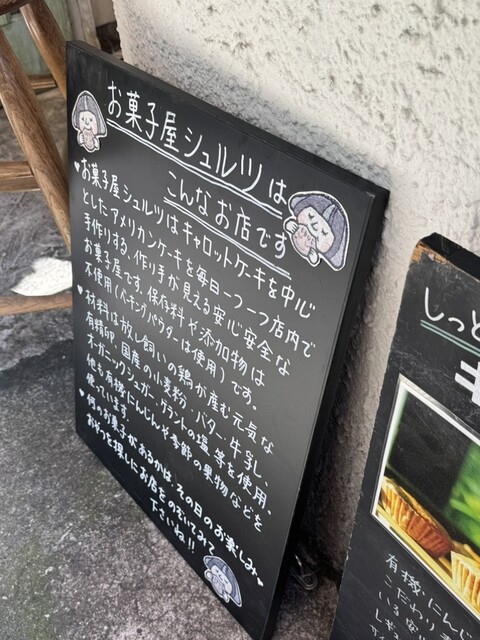 お菓子屋シュルツは
こんなお店です
♥お菓子屋シュルツはキャロットケーキを中心
としたアメリカンケーキを毎日一つ一つ店内で
手作りする、作り手が見える安心安全な
お菓子屋です。保存料や添加物は
不使用(ベーキングパウダーは使用)です。
♥材料は放し飼いの鶏が産む元気な
有精卵、国産の小麦粉・バター・牛乳、
オーガニックシュガー、ゲラントの塩 等を使用、
他も有機にんじんや季節の果物などを
使っています。
♥何のお菓子があるかは、その日のお楽しみ♥
おやつを探しにお店をのぞいてみて
下さいね!!
しっと
キ
有機・にんじ
こだわり